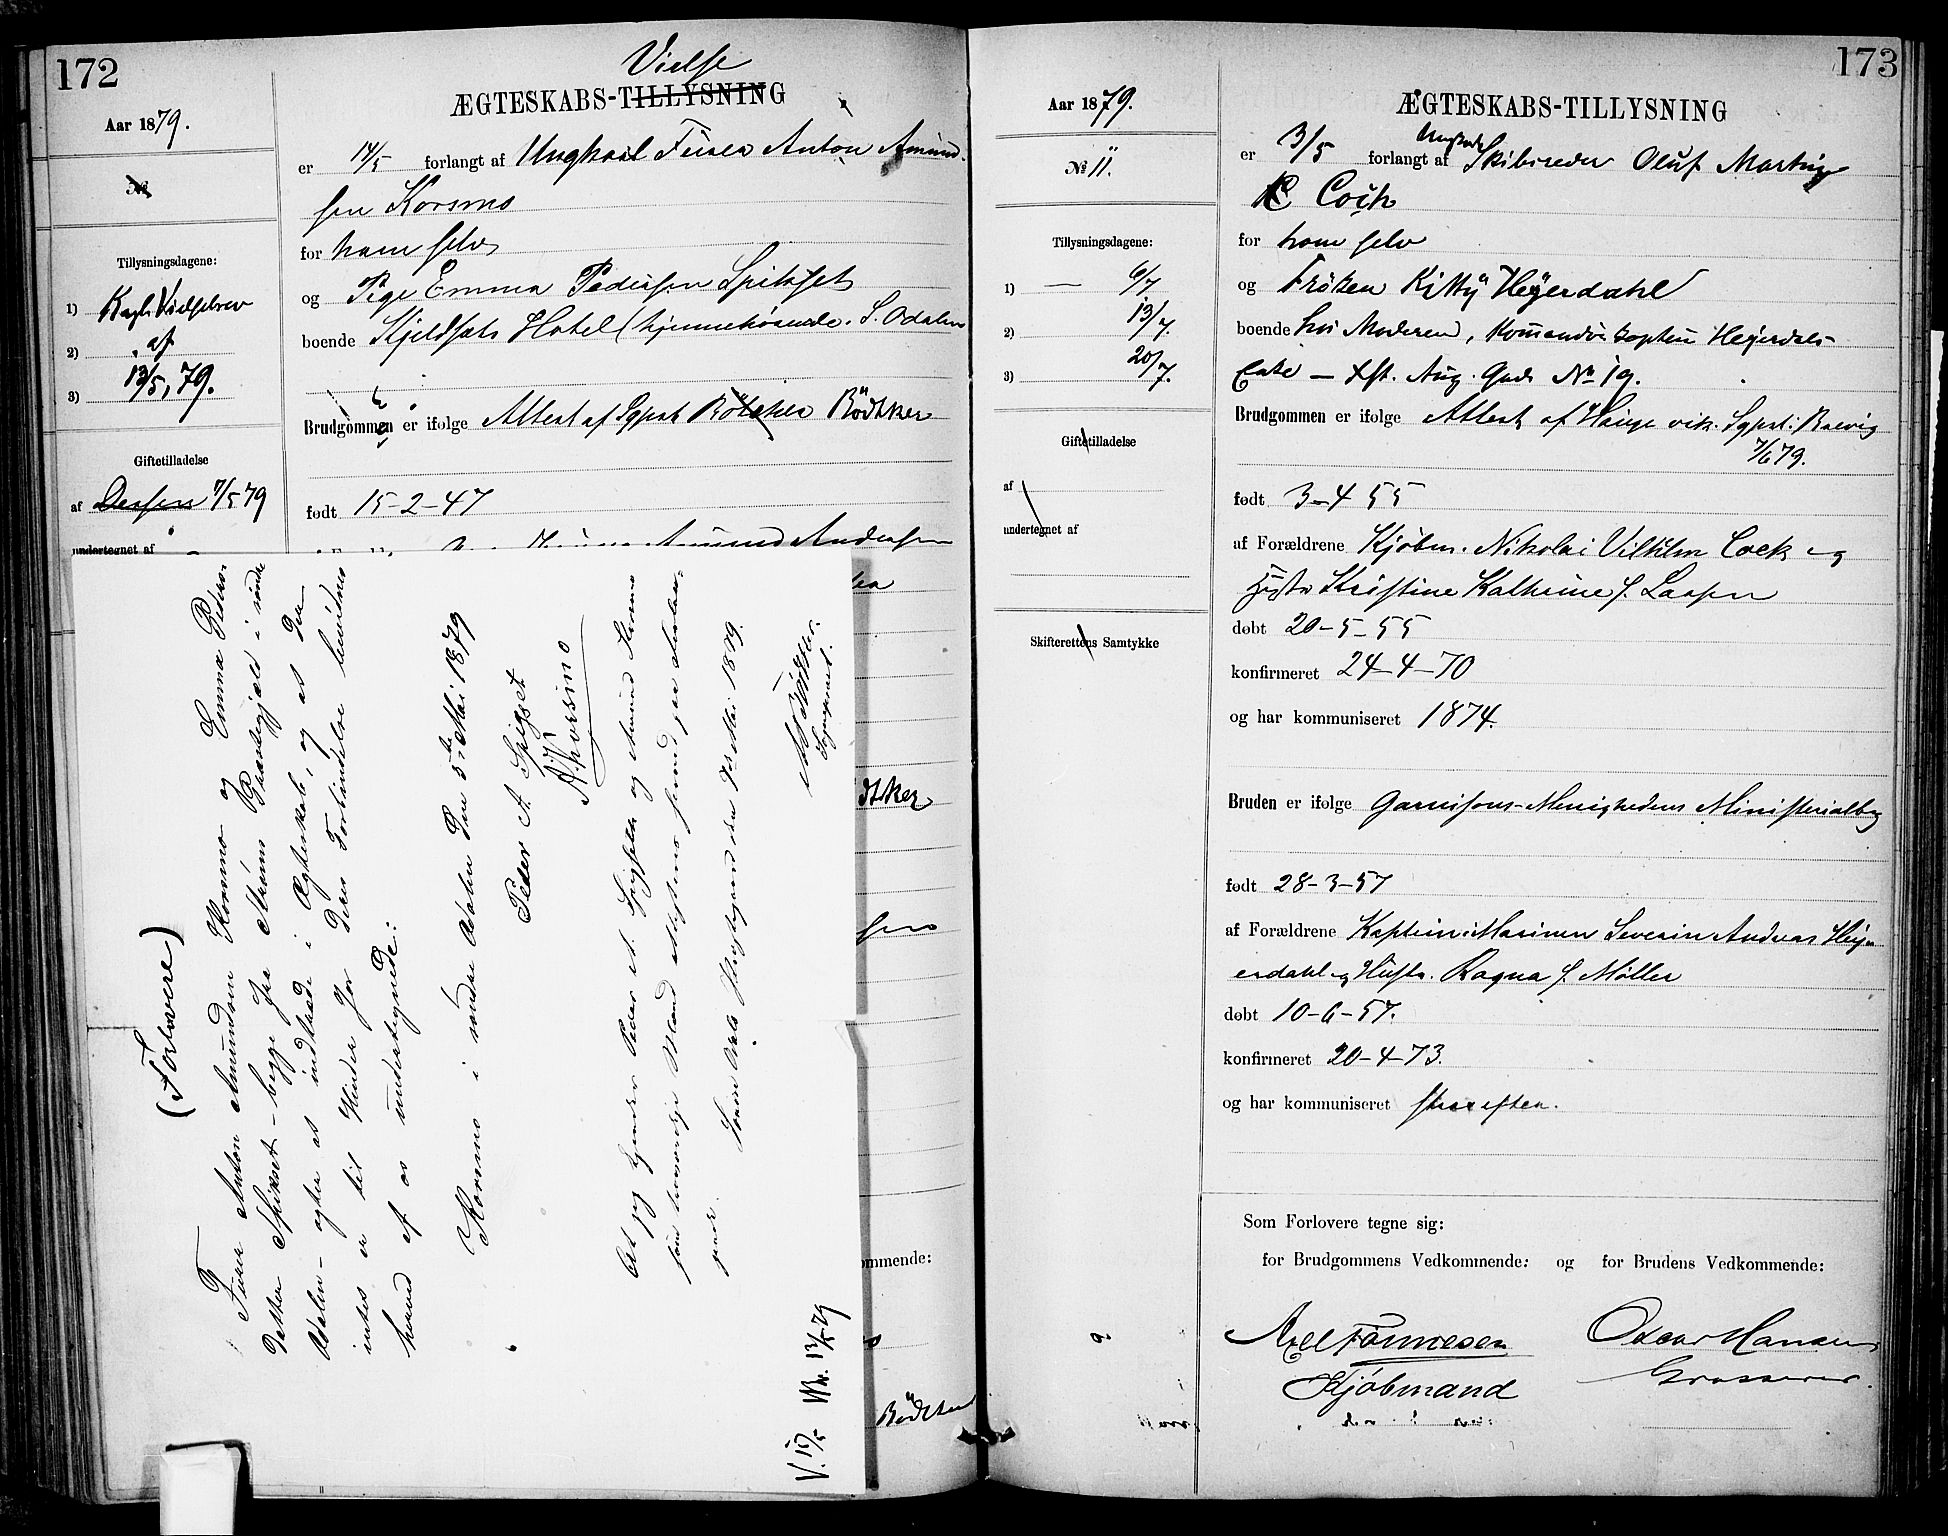 172
Aar 1879.
№
Tillysningsdagene:
1) Kgl. Vielsebrev
2) af
3) 13/5, 79.
Giftetilladelse
af Dessen 7/5 79
undertegnet af
Vielse
ÆGTESKABS-TILLYSNING
er 14/5 forlangt af Ungkarl Feier Anton Amund-
sen Korsmo
for ham selv
og Pige Emma Pedersen Spikset
boende Skjeldsets Hotel (hjemmehørende S. Odalen
Brudgommen er ifølge Attest af Sgpst Bøtcker Bødtker
født 15-2-47
Amund Andersen
dtker
ommende:
Bødtker
(Forlovere)
Furer Anton Amundsen Korsmo og Emma Peders-
Datter Spikset - begge fra Strøms Præstegjæld i søndre
Odalen - agter at indtræde i Ægteskab, og at der
intet er til Hinder for deres Forbindelse bevidnes
herved af os undertegnede:
Korsmo i søndre Odalen den 5te Mai 1879
Peder A. Spigset
A. Korsmo
At jeg kjender Peder A. Spigset og Amund Korsmo
som Mænd
Mai 1879.
Bødtker.
Sogneprest.
V. 17/5 13/5 79
173
Aar 1879.
№ 11.
Tillysningsdagene:
1) — 6/7
2) 13/7.
3) 20/7.
Giftetilladelse
af
undertegnet af
Skifterettens Samtykke
ÆGTESKABS-TILLYSNING
er 3/5 forlangt af Ungkarl Skibsreder Oluf Martin
C Coch
for ham selv
og Frøken Kitty Heyerdahl
boende hos Moderen, Komandørkaptein Heyerdals
Enke — Kst. Aug. Gade No 19.
Brudgommen er ifølge Attest af Hauge vik. Sgpst. i Brevig
7/6 79.
født 3-4 55
af Forældrene Kjøbm. Nikolai Vilhelm Cock og
Hustr Kristine Kathrine f. Larsen
døbt 20-5-55
konfirmeret 24-4-70
og har kommuniseret 1874.
Bruden er ifølge Garnisons-Menighedens Ministerialbog
født 28-3-57
af Forældrene Kaptein i Marinen Severin Andreas Hey-
erdahl og Hustr. Ragna f. Møller
døbt 10-6-57.
konfirmeret 20-4-73.
og har kommuniseret strax efter.
Som Forlovere tegne sig:
for Brudgommens Vedkommende: og for Brudens Vedkommende:
Axel Tønnesen Oscar Hansen
Kjøbmand Grosserer.